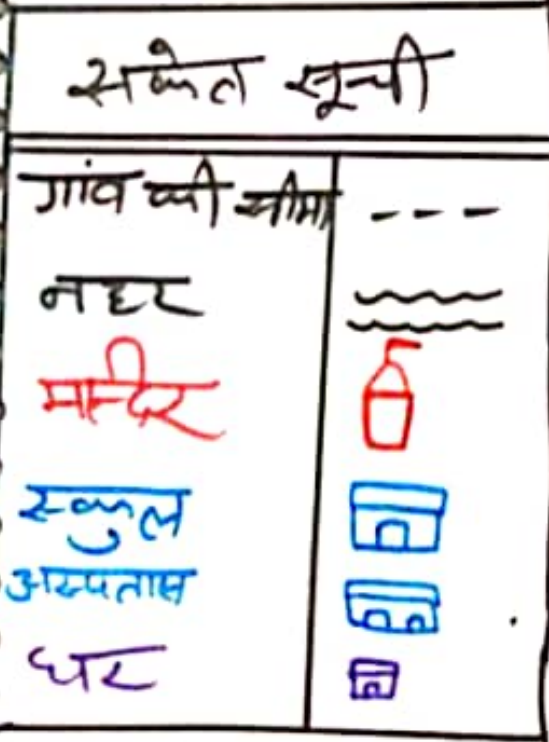 सकेत सूची
गांव की सीमा
नहर
मन्दिर
स्कुल
अस्पताल
घर